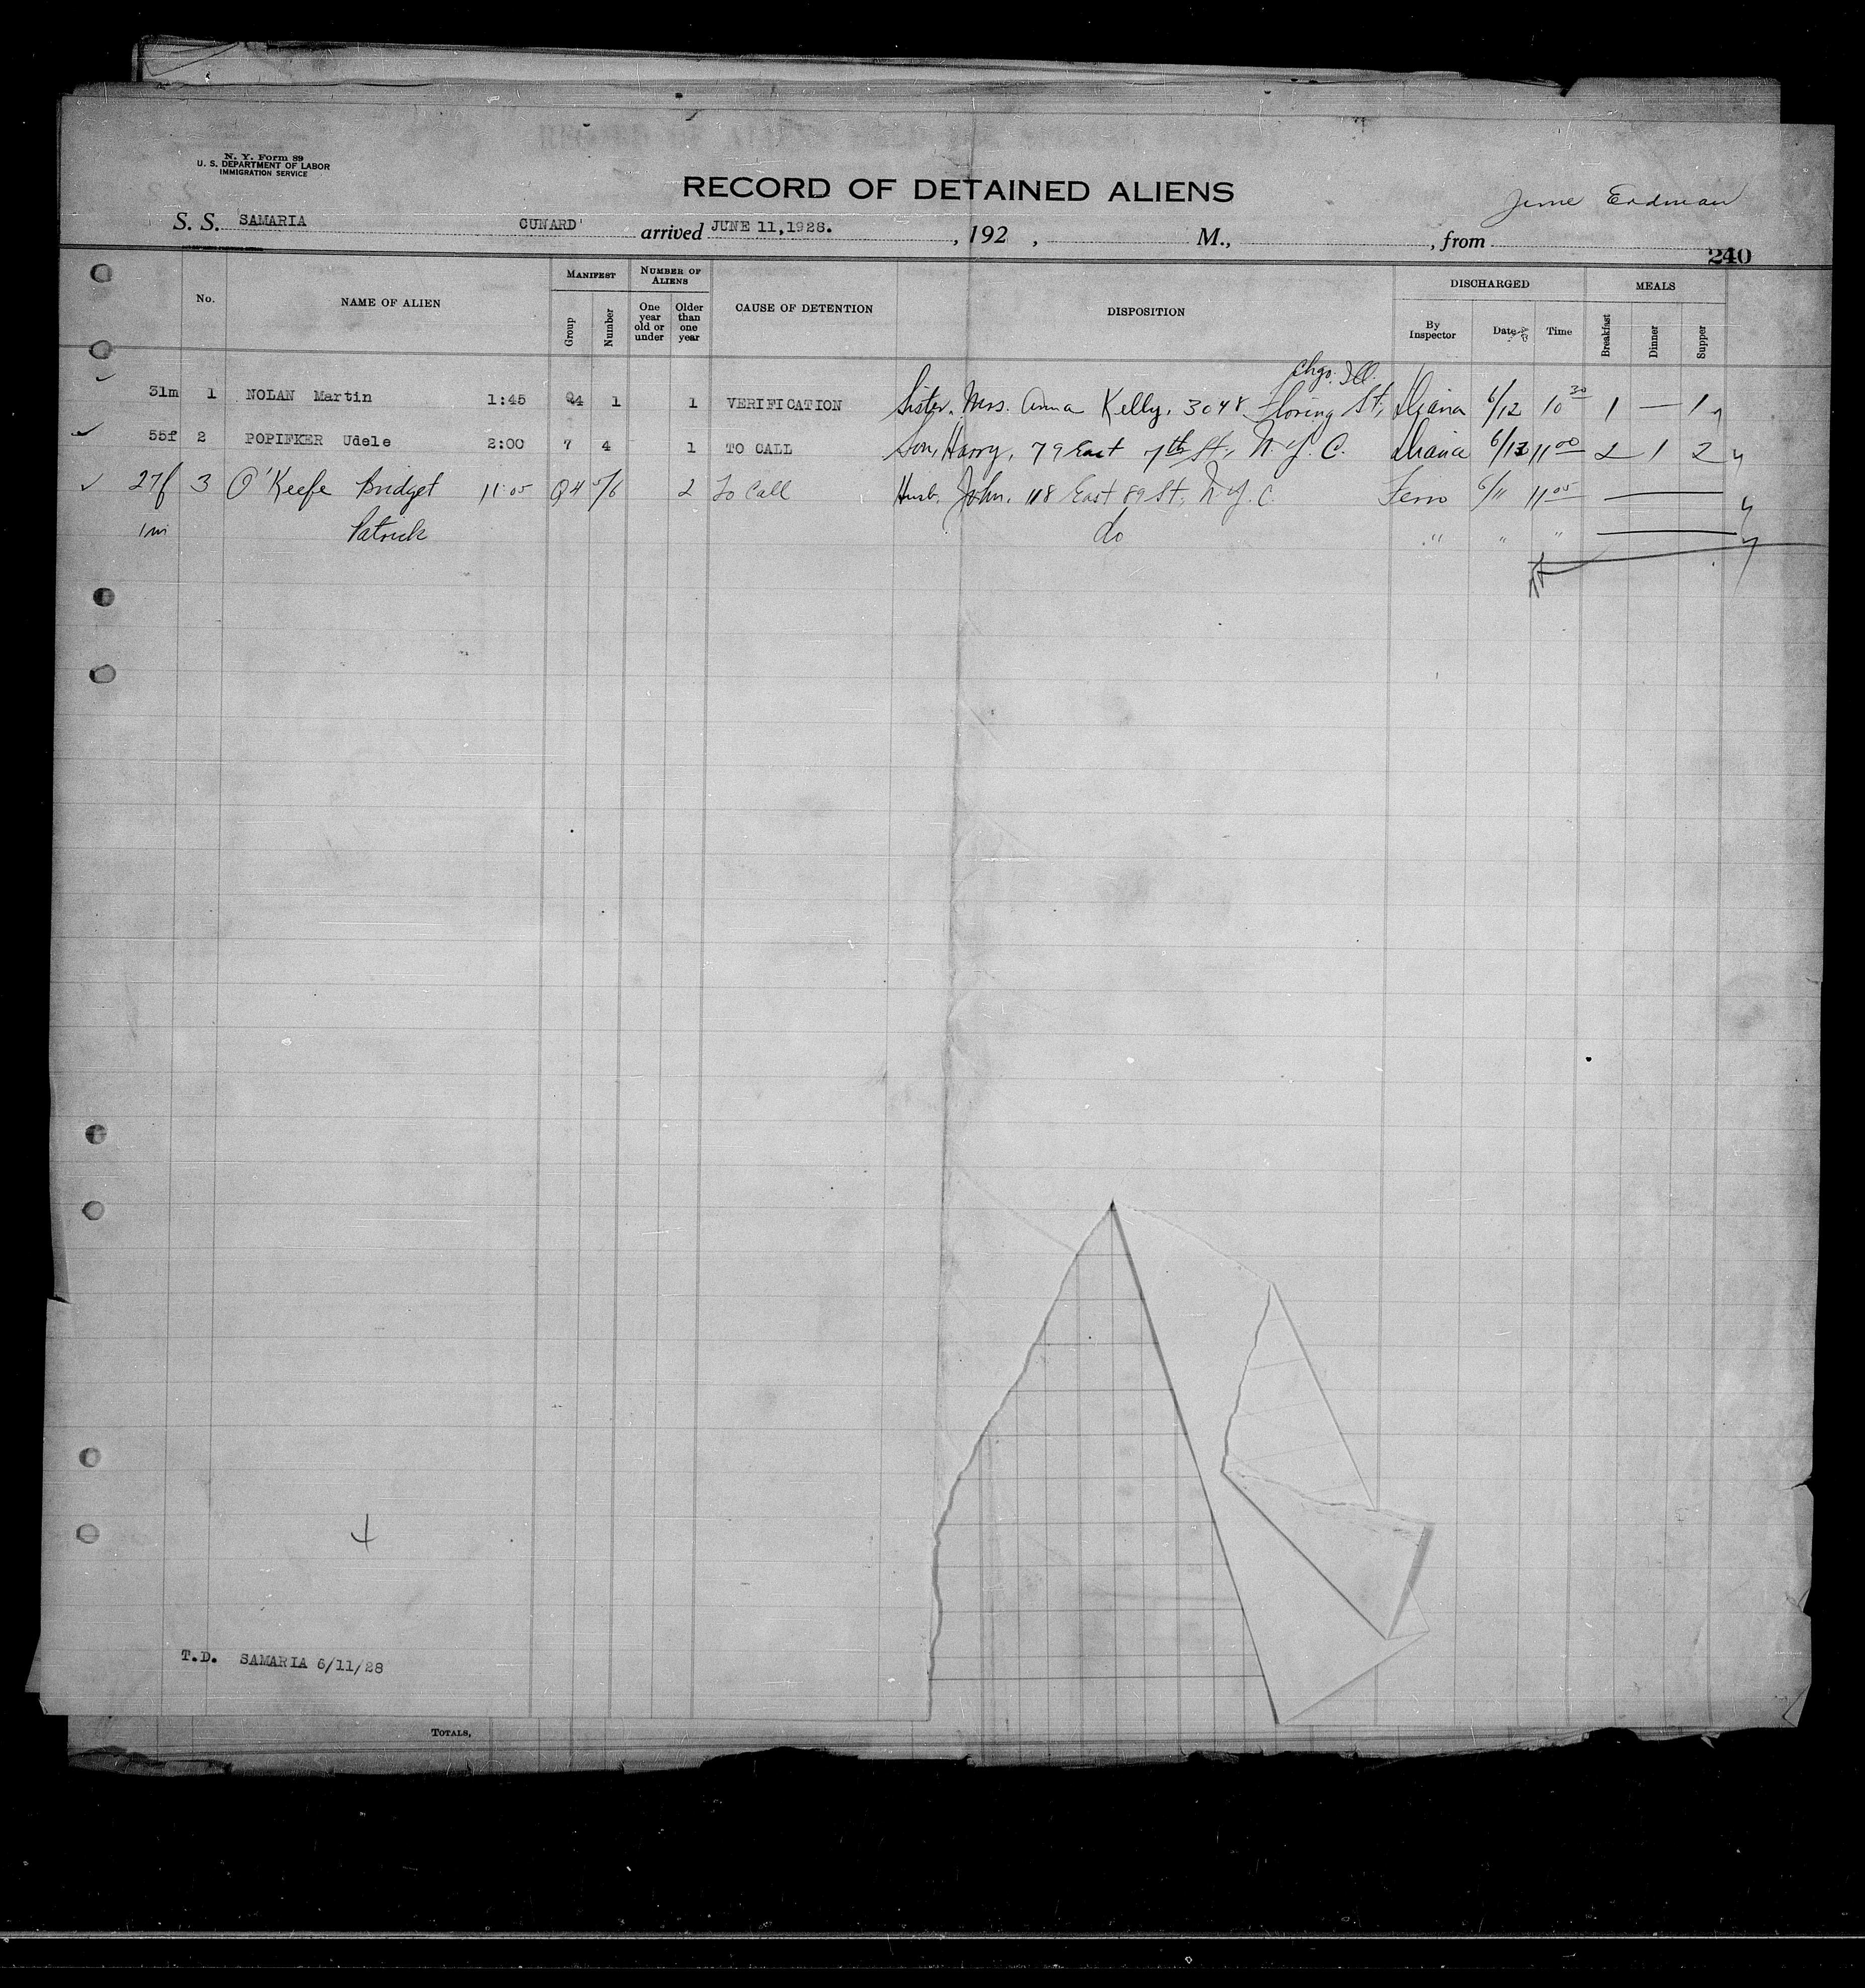 N. Y. Form 89
U. S. DEPARTMENT OF LABOR
IMMIGRATION SERVICE
RECORD OF DETAINED ALIENS
Erdman
S. S. SAMARIA CUNARD arrived JUNE 11,1928. , 192 , M., , from
240
No. NAME OF ALIEN MANIFEST Group Number NUMBER OF ALIENS One year old or under Older than one year CAUSE OF DETENTION DISPOSITION DISCHARGED By Inspector Date Time MEALS Breakfast Dinner Supper
Chgo. Ill.
31m 1 NOLAN Martin 1:45 Q4 1 1 VERIFICATION Sister, Mrs. Anna Kelly, 3048 St, 6/12 10 30 1 — 1
55f 2 POPIFKER Udele 2:00 7 4 1 TO CALL Son, Harry, 79 East 7th St., N.Y.C. 6/13 11 00 2 1 2
27f 3 O'Keefe Bridget 11:05 Q4 5/6 2 To Call Husb. John, 118 East 89 St, N.Y.C. Ferro 6/11 11 05 —
1m Patrick do " " " —
T.D. SAMARIA 6/11/28
TOTALS,